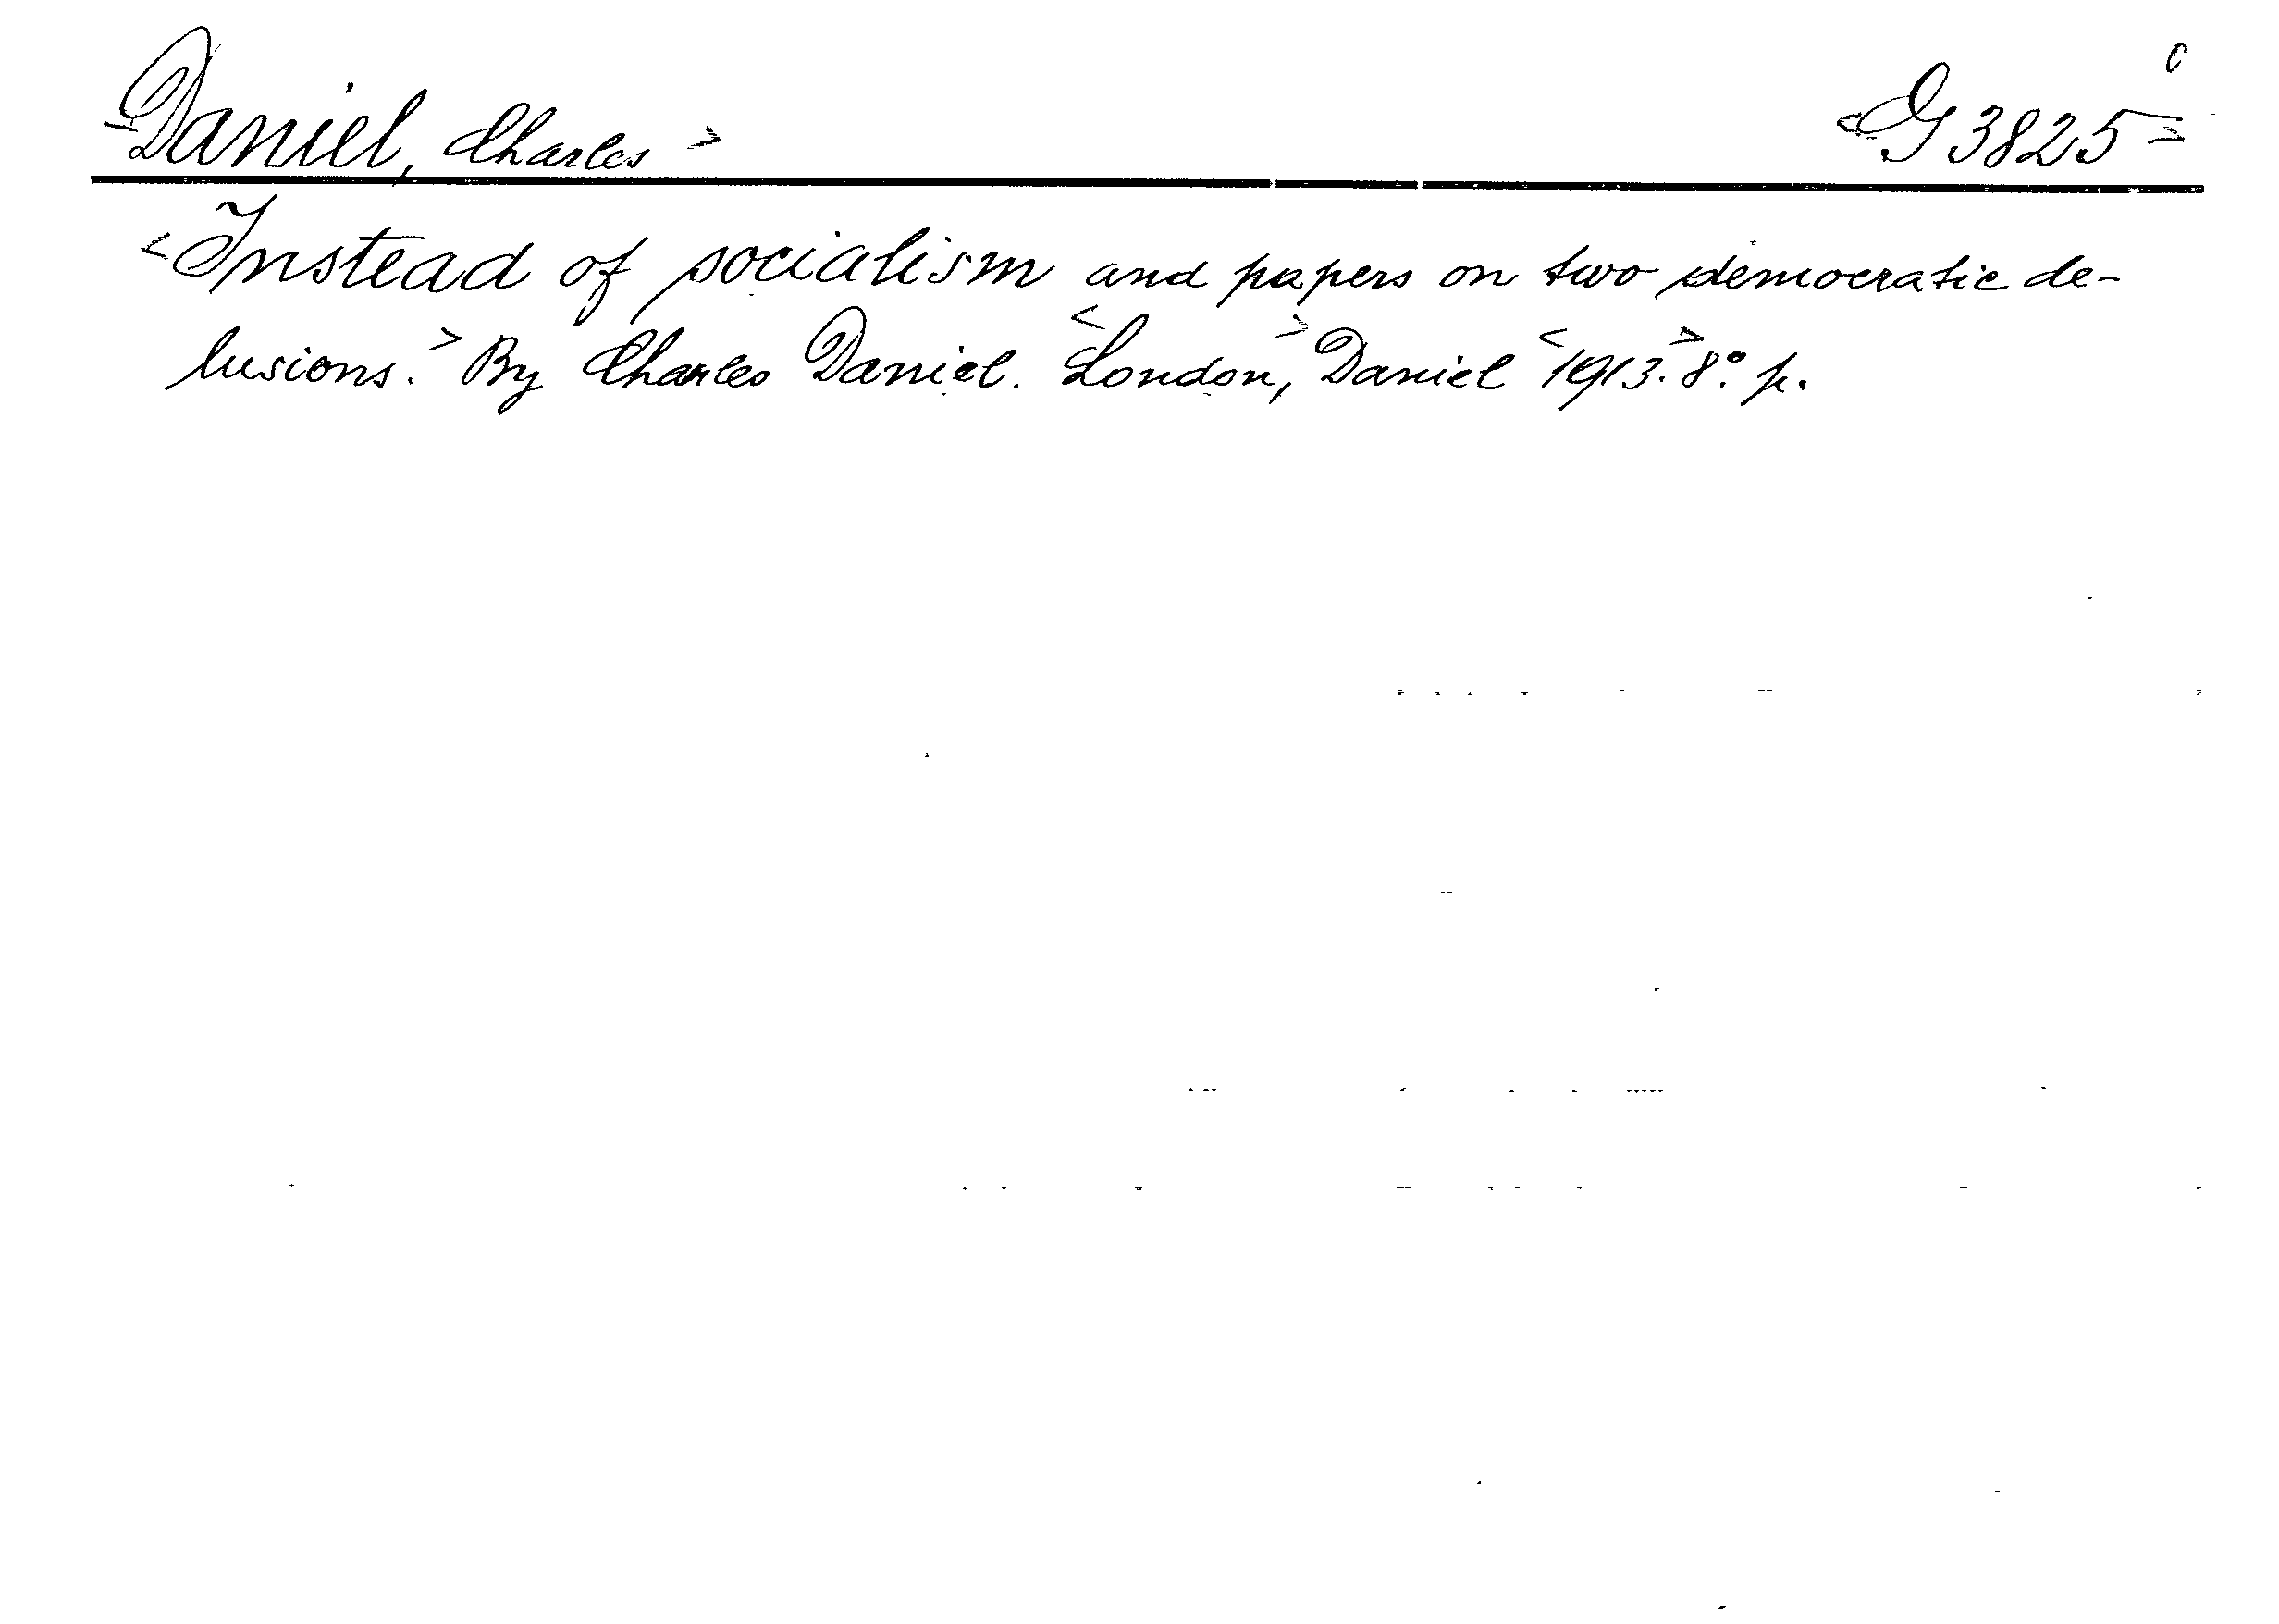 <Daniel, Charles> <G 3825>
<Instead of socialism and papers on two democratic de-
lusions.> By Charles Daniel. <London,> Daniel <1913.> 8° p.